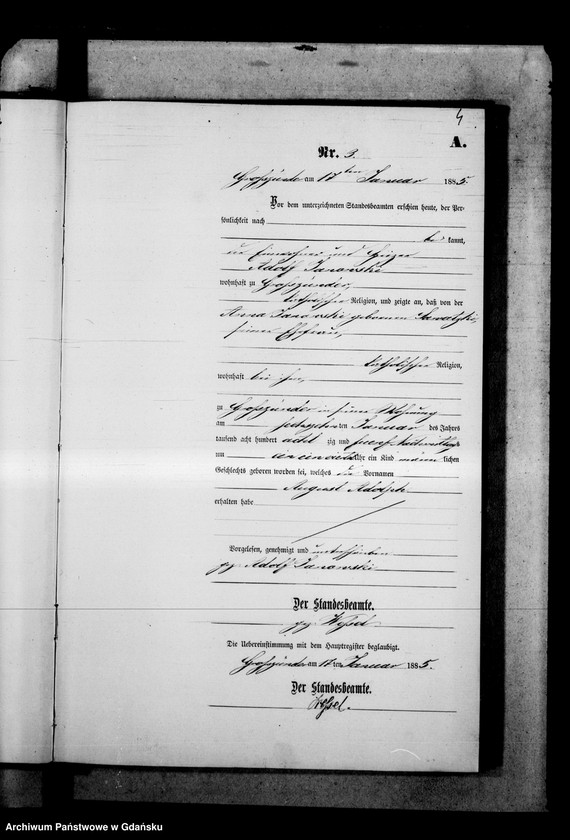 4
A.
Nr. 3.
Großzünder am 17ten Januar 1885.
Vor dem unterzeichneten Standesbeamten erschien heute, der Per-
sönlichkeit nach
be kannt,
der Einwohner und
Adolf Janowski
wohnhaft zu Großzünder,
katholischer Religion, und zeigte an, daß von der
Anna Janowski geborenen
seiner Ehefrau,
katholischer Religion,
wohnhaft bei ihm,
zu Großzünder in seiner Wohnung
am ten Januar des Jahres
tausend acht hundert acht zig und fünf Nachmittags
um Uhr ein Kind männ lichen
Geschlechts geboren worden sei, welches die Vornamen
August Adolph
erhalten habe
Vorgelesen, genehmigt und unterschrieben
gez. Adolf Janowski
Der Standesbeamte.
gez. Wessel
Die Uebereinstimmung mit dem Hauptregister beglaubigt.
Großzünder am 17ten Januar 1885.
Der Standesbeamte.
Wessel.
Archiwum Państwowe w Gdańsku